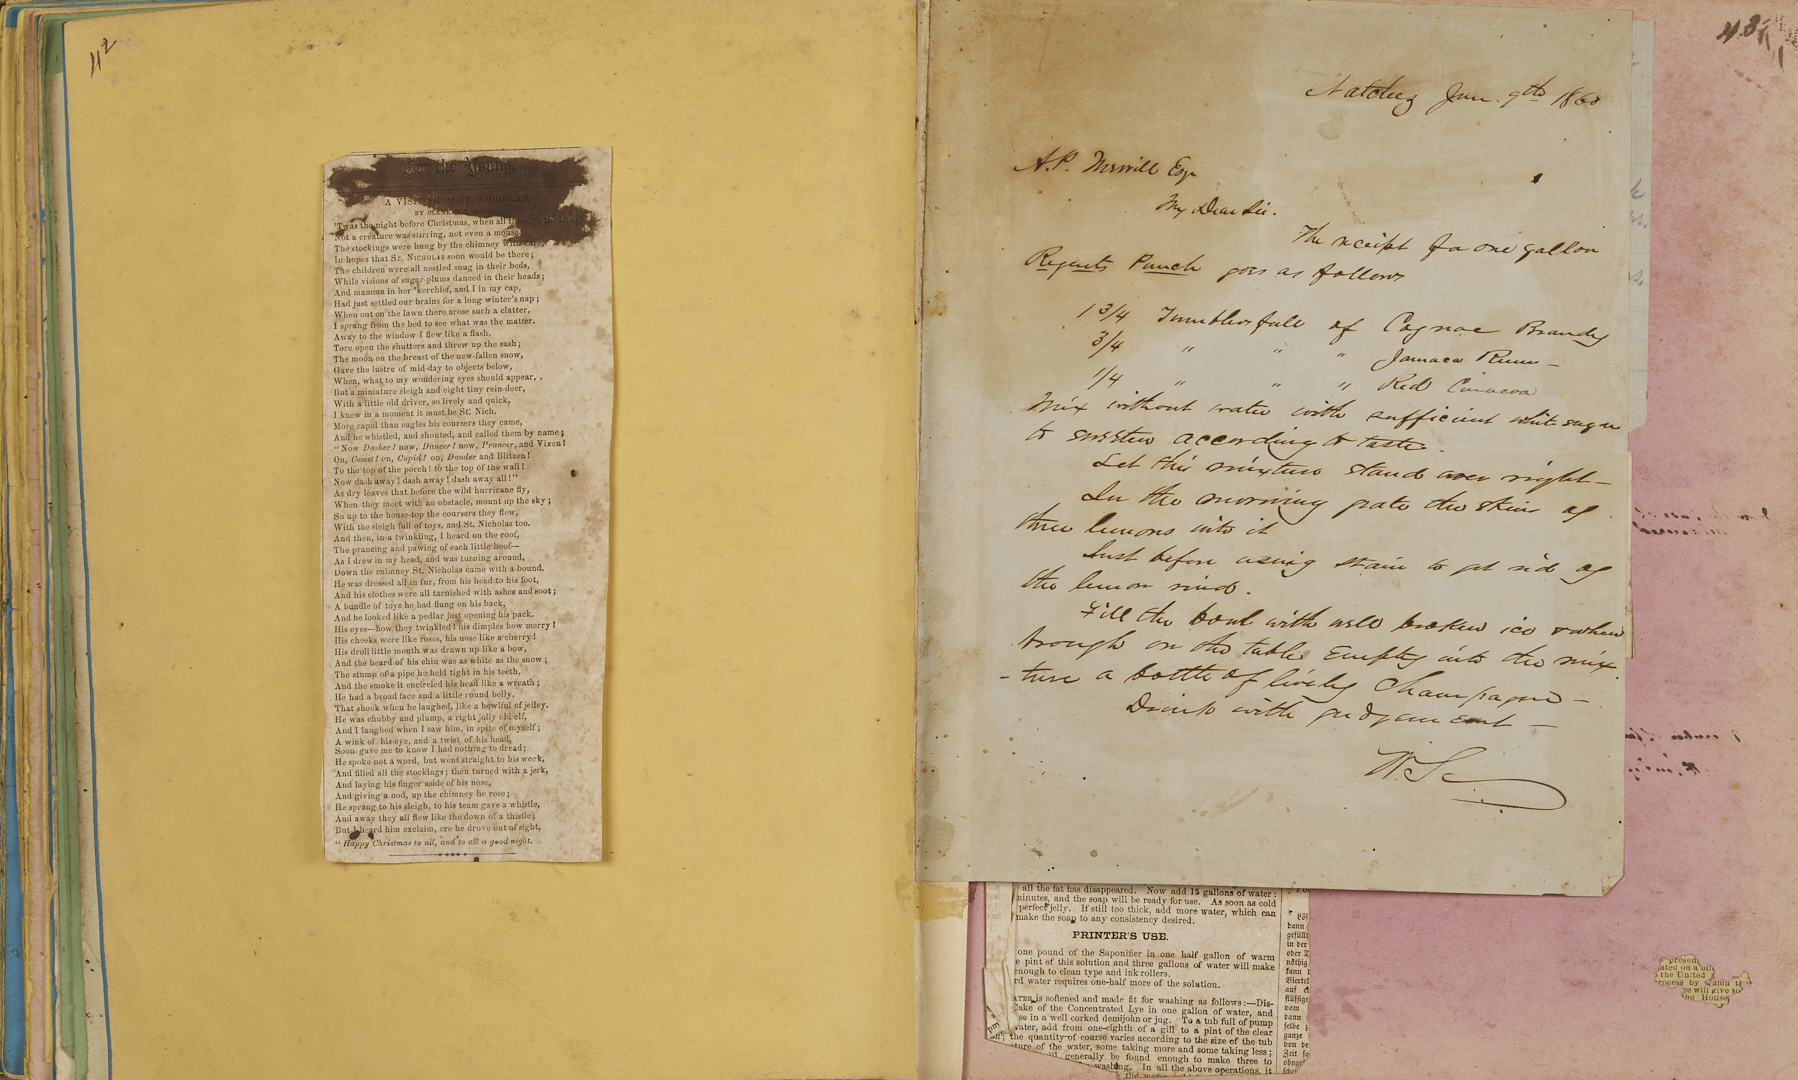 42
For the Young.
A VISIT FROM ST. NICHOLAS.
BY
'Twas the night before Christmas, when all through the house
Not a creature was stirring, not even a mouse;
The stockings were hung by the chimney with care,
In hopes that ST. NICHOLAS soon would be there;
The children were all nestled snug in their beds,
While visions of sugar-plums danced in their heads;
And mamma in her 'kerchief, and I in my cap,
Had just settled our brains for a long winter's nap;
When out on the lawn there arose such a clatter,
I sprang from the bed to see what was the matter.
Away to the window I flew like a flash,
Tore open the shutters and threw up the sash;
The moon on the breast of the new-fallen snow,
Gave the lustre of mid-day to objects below,
When, what to my wondering eyes should appear,
But a miniature sleigh and eight tiny rein-deer,
With a little old driver, so lively and quick,
I knew in a moment it must be St. Nich.
More rapid than eagles his coursers they came,
And he whistled, and shouted, and called them by name;
"Now Dasher! now, Dancer! now, Prancer, and Vixen!
On, Comet! on, Cupid! on, Donder and Blitzen!
To the top of the porch! to the top of the wall!
Now dash away! dash away! dash away all!"
As dry leaves that before the wild hurricane fly,
When they meet with an obstacle, mount up the sky;
So up to the house-top the coursers they flew,
With the sleigh full of toys, and St. Nicholas too.
And then, in a twinkling, I heard on the roof,
The prancing and pawing of each little hoof—
As I drew in my head, and was turning around,
Down the chimney St. Nicholas came with a bound.
He was dressed all in fur, from his head to his foot,
And his clothes were all tarnished with ashes and soot;
A bundle of toys he had flung on his back,
And he looked like a pedlar just opening his pack.
His eyes—how they twinkled! his dimples how merry!
His cheeks were like roses, his nose like a cherry!
His droll little mouth was drawn up like a bow,
And the beard of his chin was as white as the snow;
The stump of a pipe he held tight in his teeth,
And the smoke it encircled his head like a wreath;
He had a broad face and a little round belly,
That shook when he laughed, like a bowlful of jelley.
He was chubby and plump, a right jolly old elf,
And I laughed when I saw him, in spite of myself;
A wink of his eye, and a twist of his head,
Soon gave me to know I had nothing to dread;
He spoke not a word, but went straight to his work,
And filled all the stockings; then turned with a jerk,
And laying his finger aside of his nose,
And giving a nod, up the chimney he rose;
He sprang to his sleigh, to his team gave a whistle,
And away they all flew like the down of a thistle;
But I heard him exclaim, ere he drove out of sight,
"Happy Christmas to all, and to all a good night.
43
Natchez Jan. 9th 1860
A.P. Merrill Esq
My Dear Sir.
The receipt for one gallon
Regents Punch goes as follows
1 3/4 Tumblers full of Cognac Brandy
3/4 " " " Jamaca Rum –
1/4 " " " Red Curacoa
Mix without water with sufficient white sugar
to sweeten according to taste.
Let this mixture stand over night –
In the morning grate the skins of
three lemons into it
Just before using strain to get rid of
the lemon rind.
Fill the bowl with well broken ice & when
brough on the table Empty into the mix
-ture a bottle of lively Champagne –
Drink with judgement –
all the fat has disappeared. Now add 15 gallons of water:
minutes, and the soap will be ready for use. As soon as cold
perfect jelly. If still too thick, add more water, which can
make the soap to any consistency desired.
PRINTER'S USE.
one pound of the Saponifier in one half gallon of warm
pint of this solution and three gallons of water will make
enough to clean type and ink rollers.
water requires one-half more of the solution.
is softened and made fit for washing as follows:—Dis-
cake of the Concentrated Lye in one gallon of water, and
in a well corked demijohn or jug. To a tub full of pump
water, add from one-eighth of a gill to a pint of the clear
the quantity of course varies according to the size of the tub
of the water, some taking more and some taking less;
generally be found enough to make three to
washing. In all the above operations, it
dann
gefüllt
in der
oder
nöthig
kann
Viertel
auf
flüssige
vom
dann
selbe
ganze
von de
Zeit
presen
ated on a
the United
rocess by which
we will give
the House